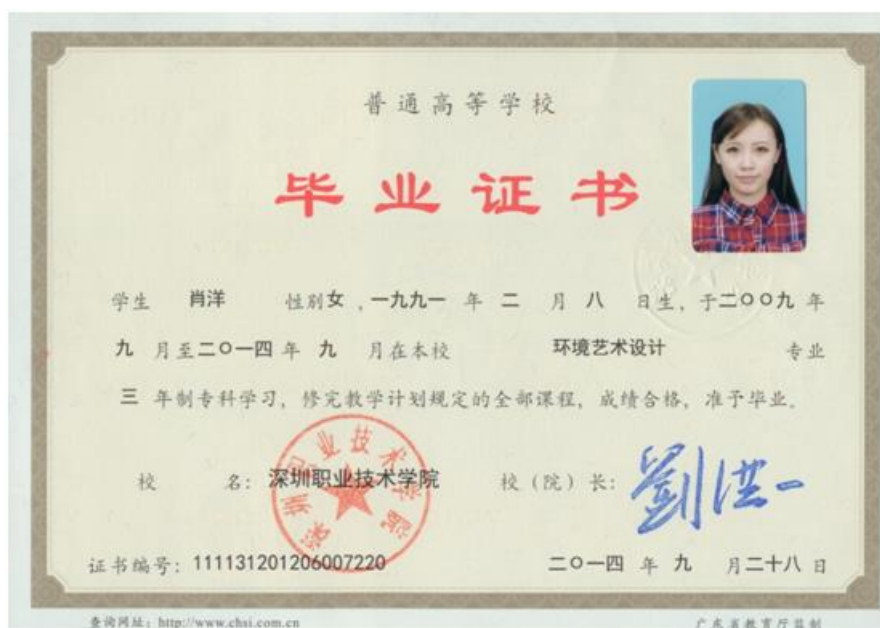 普通高等学校
毕业证书
学生 肖洋 性别女，一九九一 年 二 月 八 日生，于二〇〇九 年
九 月至二〇一四 年 九 月在本校 环境艺术设计 专业
三 年制专科学习，修完教学计划规定的全部课程，成绩合格，准予毕业。
校 名：深圳职业技术学院 校（院）长：劉洪一
深圳职业技术学院
证书编号：111131201206007220 二〇一四 年 九 月二十八 日
查询网址：http://www.chsi.com.cn 广东省教育厅监制